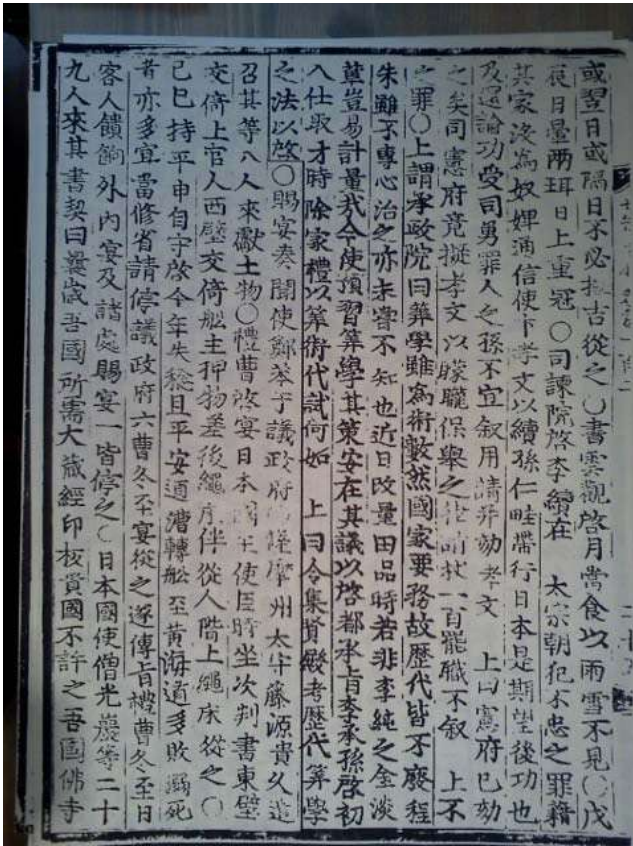 或翌日或隔日不必擇吉從之○書雲觀啓月當食以雨雪不見○戊
辰日暈兩珥日上重冠○司諫院啓李續在 太宗朝犯不忠之罪籍
其家沒為奴婢通信使卞孝文以續孫仁畦帶行日本是期望後功也
及還論功受司勇罪人之孫不宜叙用請并劾孝文 上曰憲府已劾
之矣司憲府竟擬孝文以朦朧保舉之律請杖一百罷職不叙 上不
之罪○上謂承政院曰筭學雖為術數然國家要務故歷代皆不廢程
朱雖不專心治之亦未嘗不知也近日改量田品時若非李純之金淡
輩豈易計量㦲今使預習筭學其策安在其議以啓都承旨李承孫啓初
入仕取才時除家禮以筭術代試何如 上曰令集賢殿考歷代筭學
之法以啓○賜宴奏聞使鄭苯于議政府○薩摩州太守藤源貴久遣
召其等八人來獻土物○禮曹啓宴日本國王使臣時坐次判書東壁
交倚上官人西壁交倚舩主押物差後繩床伴從人階上繩床從之○
己巳持平申自守啓今年失稔且平安道漕轉舩至黃海道多敗溺死
者亦多宜當修省請停議政府六曹冬至宴從之遂傳旨禮曹冬至日
客人饋餉外內宴及諸處賜宴一皆停之○日本國使僧光嚴等二十
九人來其書契曰曩歲吾國所需大藏經印板貴國不許之吾國佛寺